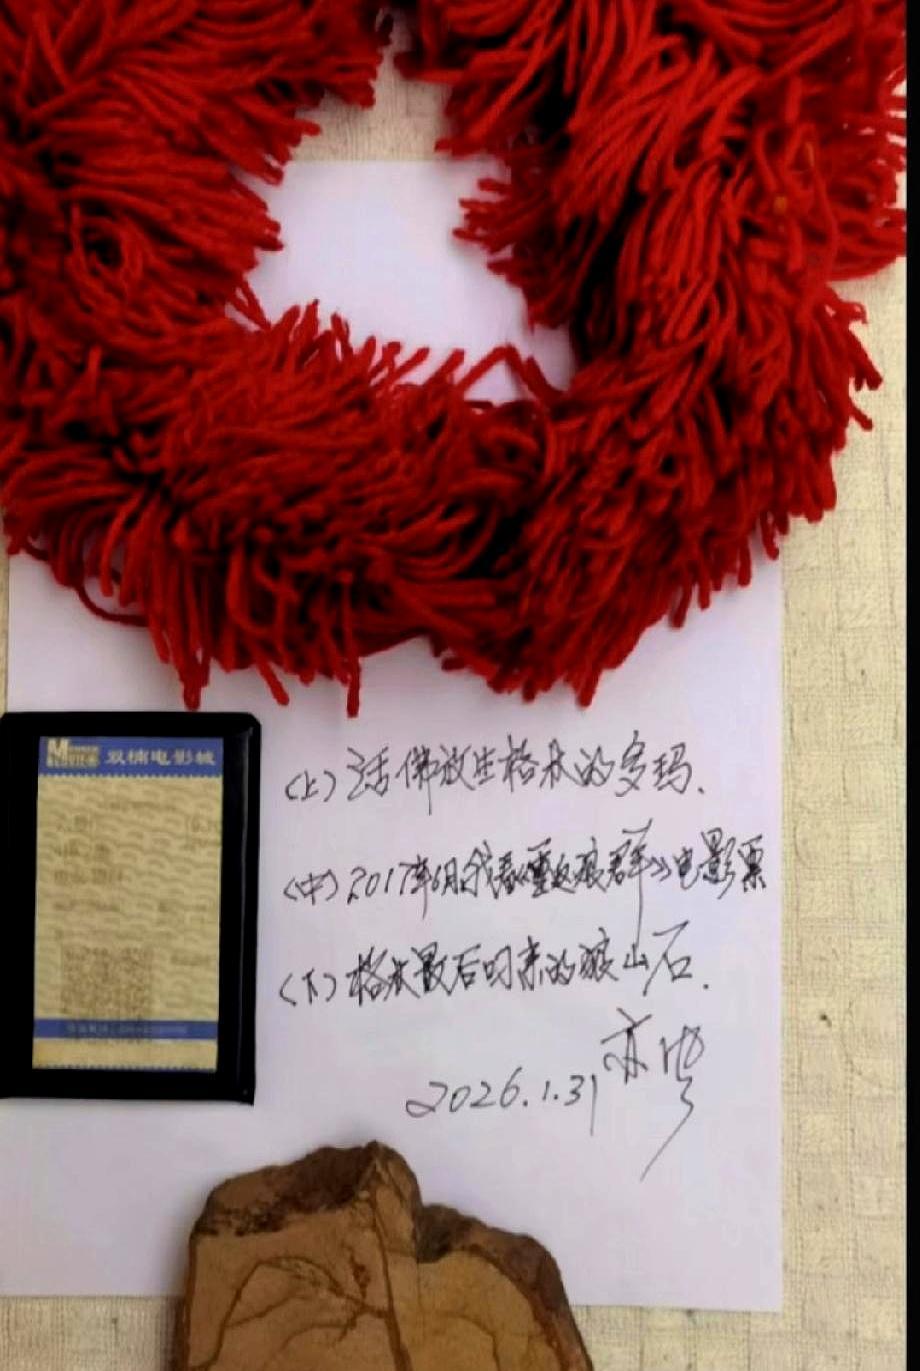 双楠电影城
(上)活佛放生格木的多玛.
(中)2017年6月我看《重返狼群》电影票
(下)格木最后回来的狼山石.
亦风
2026.1.31